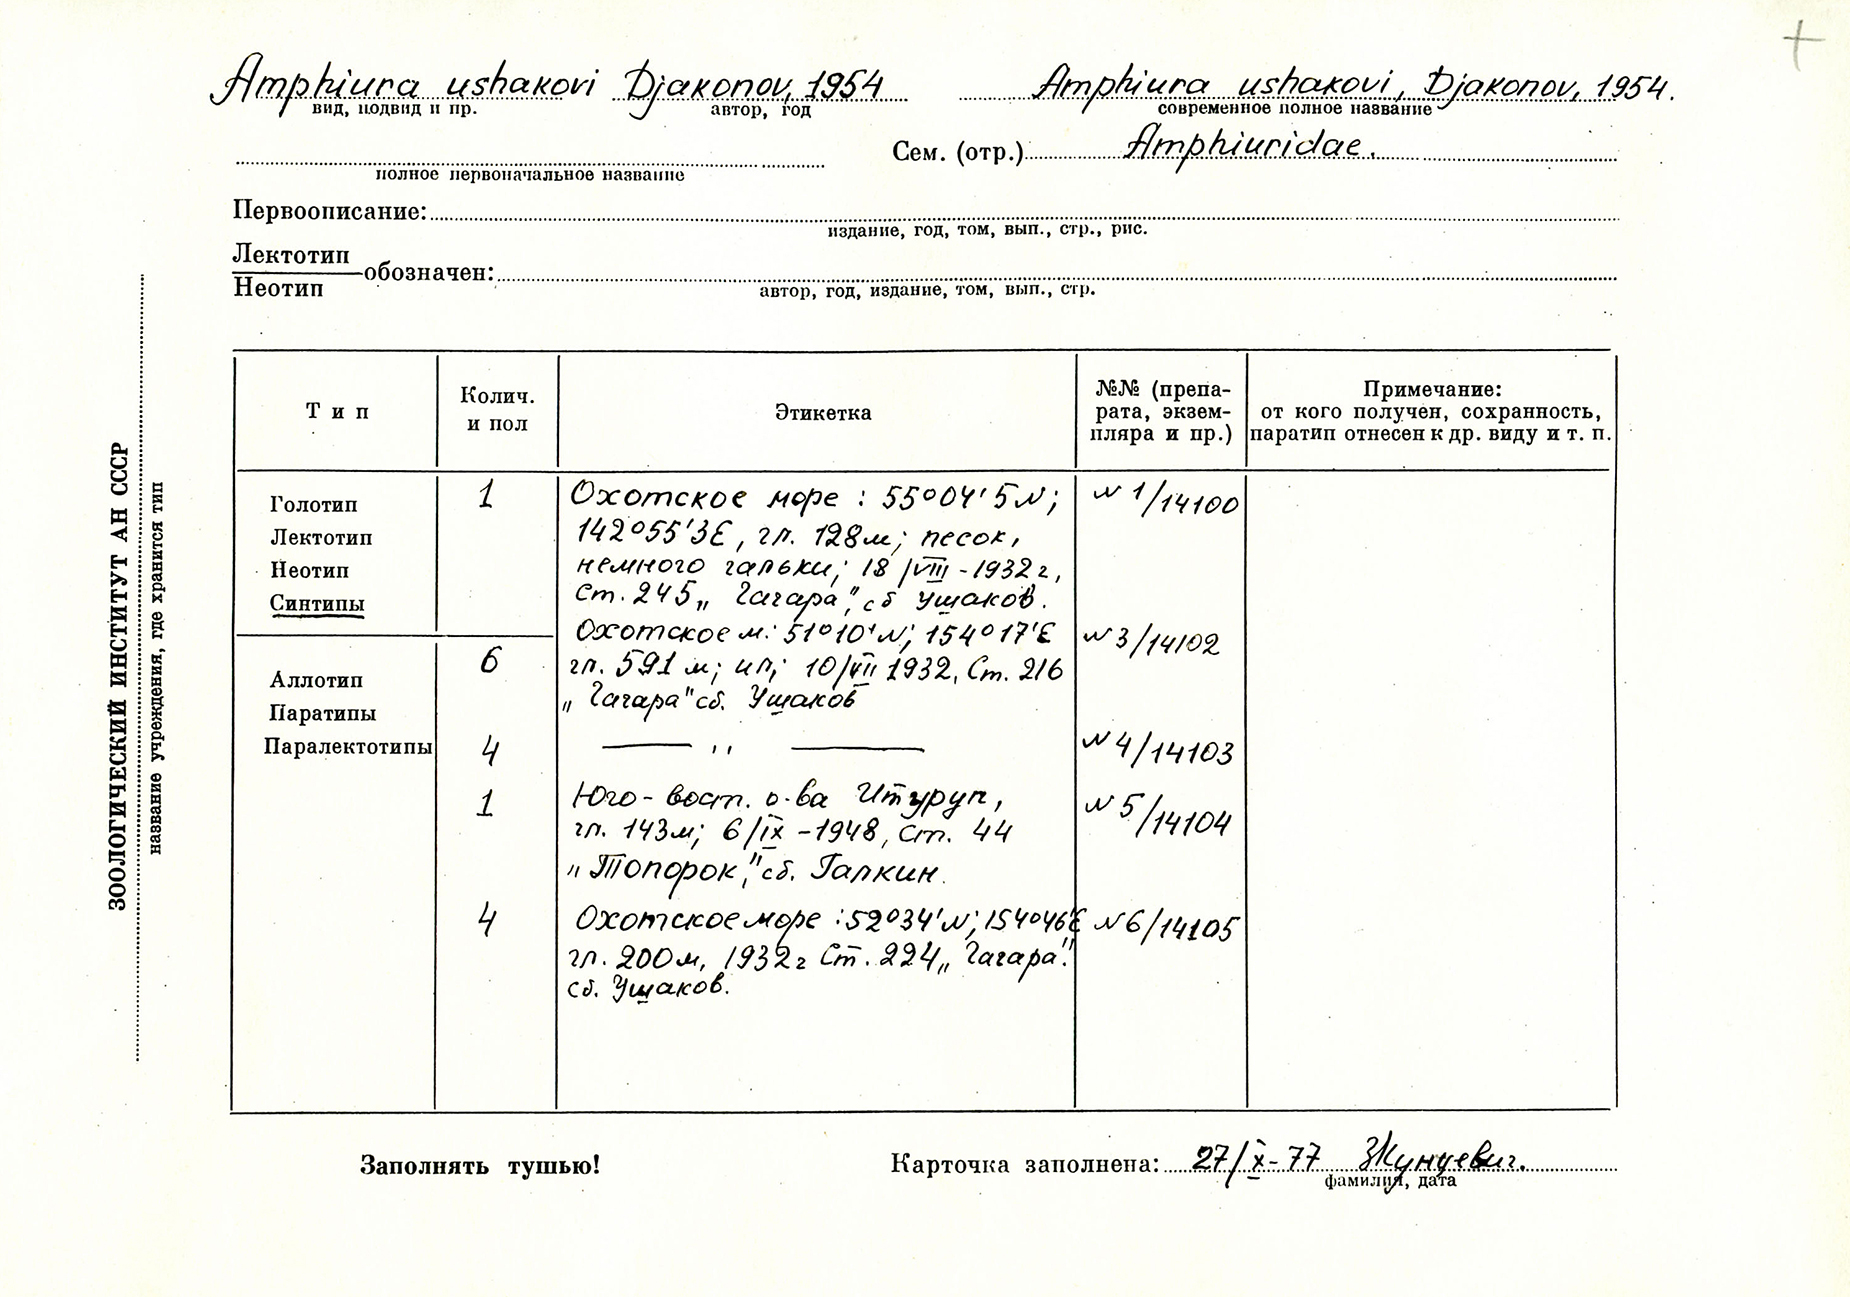 Amphiura ushakovi Djakonov, 1954
вид, подвид и пр. автор, год
Amphiura ushakovi, Djakonov, 1954.
современное полное название
Сем. (отр.) Amphiuridae.
полное первоначальное название
Первоописание:
издание, год, том, вып., стр., рис.
Лектотип
обозначен:
Неотип
автор, год, издание, том, вып., стр.
ЗООЛОГИЧЕСКИЙ ИНСТИТУТ АН СССР
название учреждения, где хранится тип
Тип
Колич.
и пол
Этикетка
№№ (препа-
рата, экзем-
пляра и пр.)
Примечание:
от кого получен, сохранность,
паратип отнесен к др. виду и т. п.
Голотип
Лектотип
Неотип
Синтипы
Аллотип
Паратипы
Паралектотипы
1
Охотское море : 55°04'5N;
142°55'3E, гл. 128м; песок,
немного гальки; 18/VIII-1932г,
Ст. 245 „Гагара", сб Ушаков.
N 1/14100
6
Охотское м.: 51°10'N; 154°17'E
гл. 591 м; ил; 10/VII 1932, Ст. 216
„Гагара" сб. Ушаков
N 3/14102
4
— ,, —
N 4/14103
1
Юго-вост. о-ва Итуруп,
гл. 143м; 6/IX-1948, Ст. 44
„Топорок", сб. Галкин.
N 5/14104
4
Охотское море : 52°34'N; 154°46'E
гл. 200м, 1932г Ст. 224 „Гагара".
сб. Ушаков.
N 6/14105
Заполнять тушью!
Карточка заполнена: 27/X-77
фамилия, дата